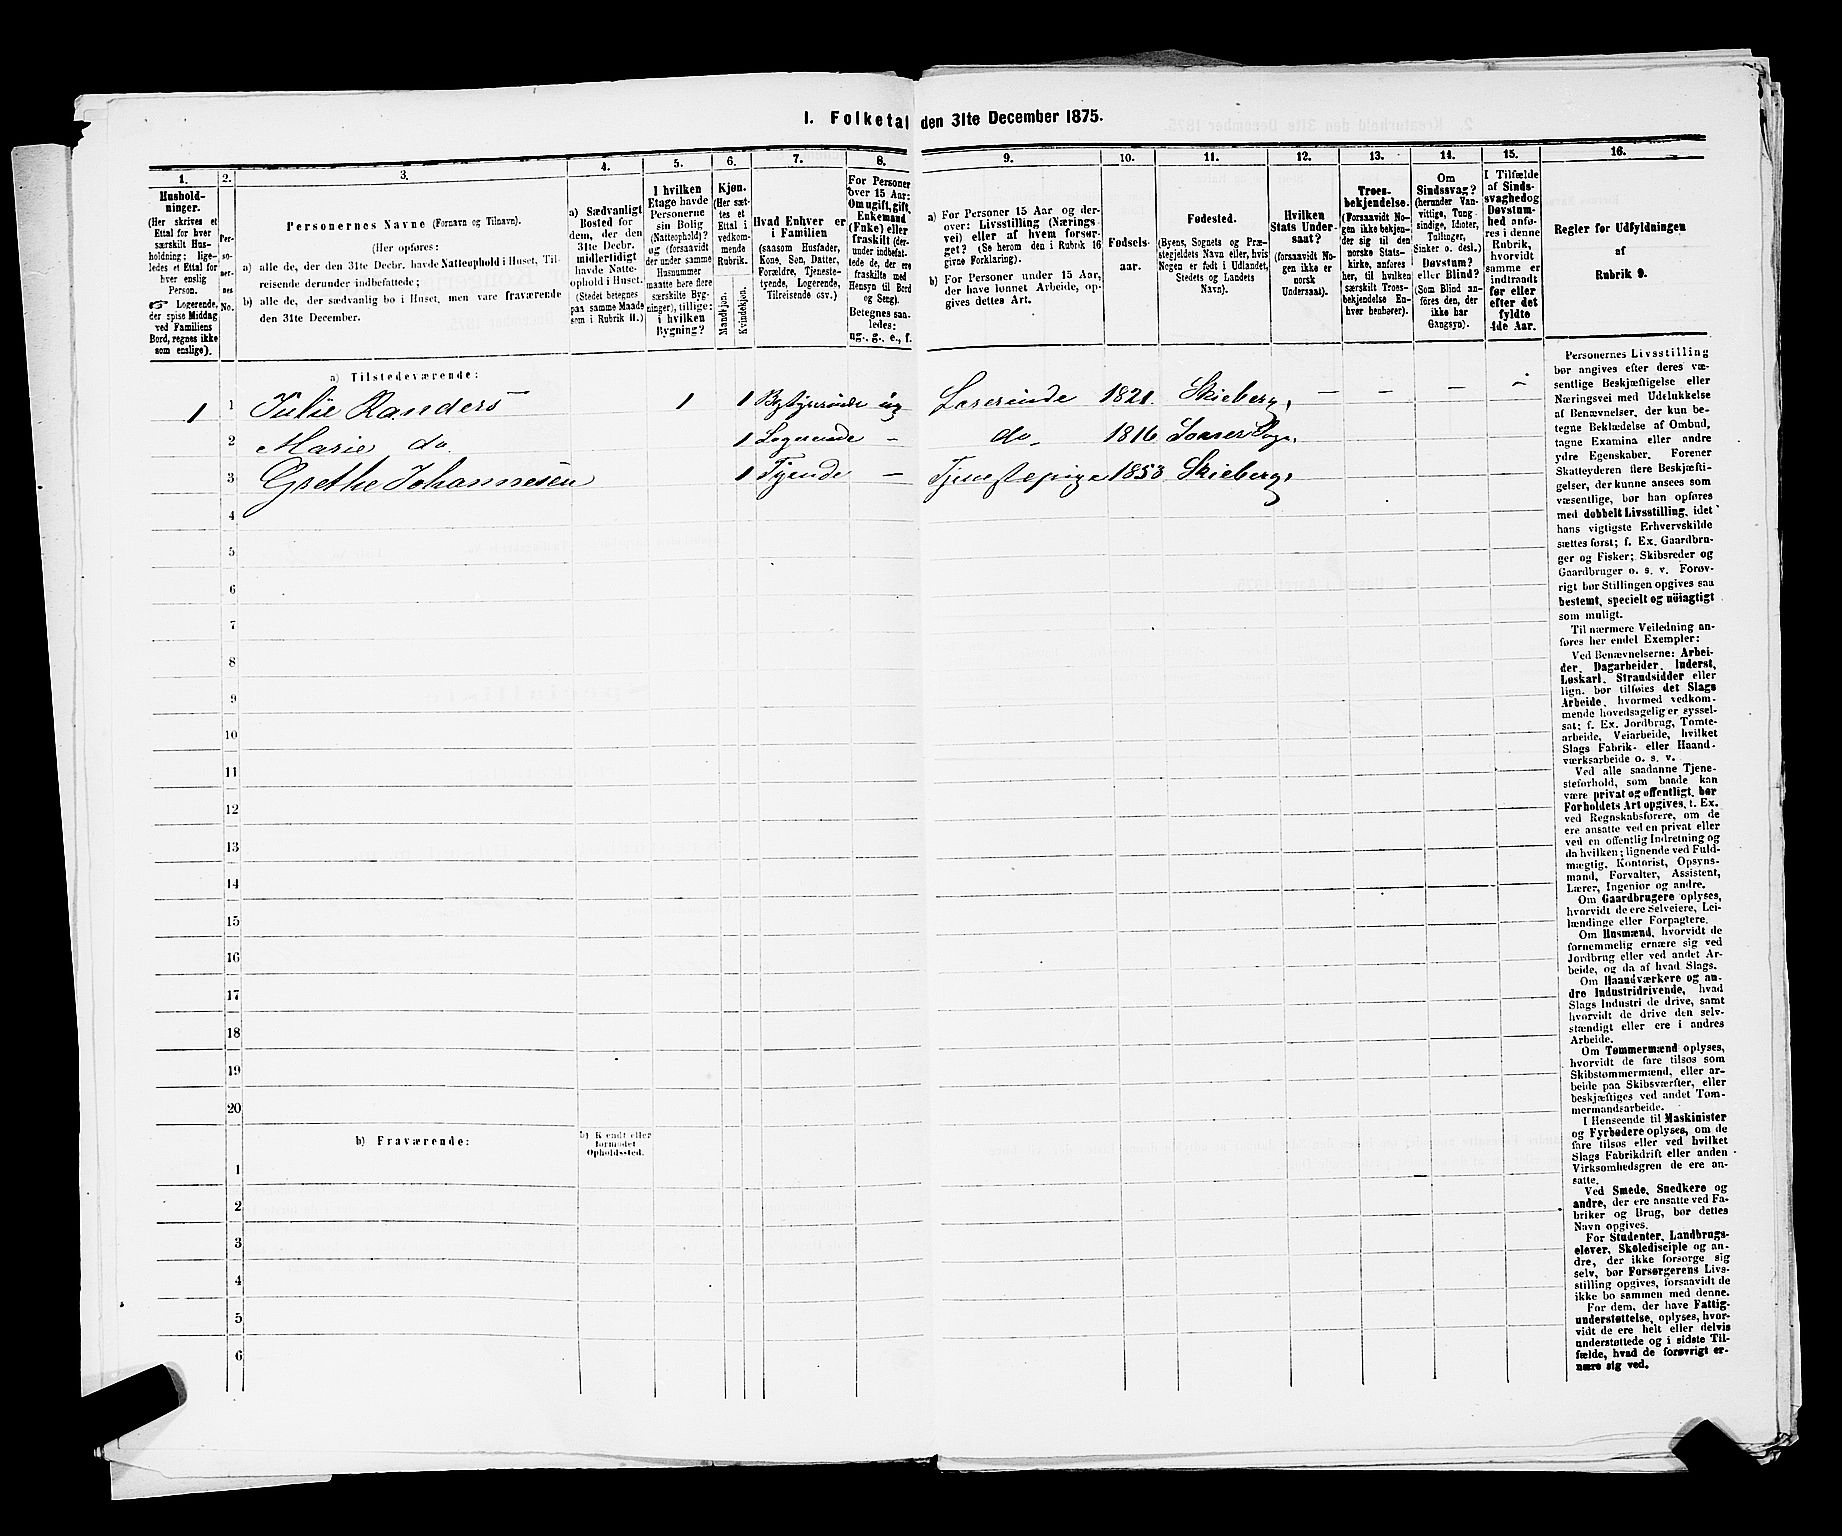 1. Folketal den 31te December 1875.
1. 2. 3. 4. 5. 6. 7. 8. 9. 10. 11. 12. 13. 14. 15. 16.
Hushold-
ninger.
(Her skrives et
Ettal for hver
særskilt Hus-
holdning; lige-
ledes et Ettal for
hver enslig
Person.
☞ Logerende,
der spise Middag
ved Familiens
Bord, regnes ikke
som enslige).
Per-
so-
ner-
nes
No.
Personernes Navne (Fornavn og Tilnavn).
(Her opføres:
a) alle de, der den 31te Decbr. havde Natteophold i Huset, Til-
reisende derunder indbefattede;
b) alle de, der sædvanlig bo i Huset, men vare fraværende
den 31te December.
a) Sædvanligt
Bosted for
dem, der den
31te Decbr.
midlertidigt
havde Natte-
ophold i Huset.
(Stedet betegnes
paa samme Maade
som i Rubrik 11.)
I hvilken
Etage havde
Personerne
sin Bolig
(Natteophold)?
og (forsaavidt
der under samme
Husnummer
maatte høre flere
særskilte Byg-
ninger), tillige:
i hvilken
Bygning?
Kjøn.
(Her sæt-
tes et
Ettal i
vedkom-
mende
Rubrik.
Mandkjøn.
Kvindekjøn.
Hvad Enhver er
i Familien
(saasom Husfader,
Kone, Søn, Datter,
Forældre, Tjeneste-
tyende, Logerende,
Tilreisende osv.)
For Personer
over 15 Aar:
Om ugift, gift,
Enkemand
(Enke) eller
fraskilt (der-
under indbefat-
tede de, der ere
fraskilte med
Hensyn til Bord
og Seng).
Betegnes saa-
ledes:
ug., g., e., f.
a) For Personer 15 Aar og der-
over: Livsstilling (Nærings-
vei) eller af hvem forsør-
get? (Se herom den i Rubrik 16
givne Forklaring).
b) For Personer under 15 Aar,
der have lønnet Arbeide, op-
gives dettes Art.
Fødsels-
aar.
Fødested.
(Byens, Sognets og Præ-
stegjeldets Navn eller, hvis
Nogen er født i Udlandet,
Stedets og Landets
Navn).
Hvilken
Stats Under-
saat?
(forsaavidt No-
gen ikke er
norsk
Undersaat).
Troes-
bekjendelse.
(Forsaavidt No-
gen ikke bekjen-
der sig til den
norske Stats-
kirke, anføres
her, til hvilken
særskilt Troes-
bekjendelse En-
hver henhører).
Om
Sindssvag?
(herunder Van-
vittige, Tung-
sindige, Idioter,
Tullinger,
Sinker o. desl.)
Døvstum?
eller Blind?
(Som Blind an-
føres den, der
ikke har
Gangsyn).
I Tilfælde
af Sinds-
svaghed og
Døvstum-
hed anfø-
res i denne
Rubrik,
hvorvidt
samme er
indtraadt
før eller
efter det
fyldte
4de Aar.
Regler for Udfyldningen
af
Rubrik 9.
a) Tilstedeværende:
1 1 Julie Randers 1 1 Bestyrerinde ug Lærerinde 1821. Skieberg, — — — —
2 Marie do. 1 Logerende — do. 1816.
3 Grethe Johannesen 1 Tyende — Tjenestepige 1853. Skieberg,
4
5
6
7
8
9
10
11
12
13
14
15
16
17
18
19
20
b) Fraværende:
b) Kjendt eller
formodet
Opholdssted.
1
2
3
4
5
6
Personernes Livsstilling
bør angives efter deres væ-
sentlige Beskjæftigelse eller
Næringsvei med Udelukkelse
af Benævnelser, der kun be-
tegne Beklædelse af Ombud,
tagne Examina eller andre
ydre Egenskaber. Forener
Skatteyderen flere Beskjæfti-
gelser, der kunne ansees som
væsentlige, bør han opføres
med dobbelt Livsstilling, idet
hans vigtigste Erhvervskilde
sættes først; f. Ex. Gaardbru-
ger og Fisker; Skibsreder og
Gaardbruger o. s. v. Forøv-
rigt bør Stillingen opgives saa
bestemt, specielt og nøiagtigt
som muligt.
Til nærmere Veiledning an-
føres her endel Exempler:
Ved Benævnelserne: Arbei-
der, Dagarbeider, Inderst,
Løskarl, Strandsidder eller
lign. bør tilføies det Slags
Arbeide, hvormed vedkom-
mende hovedsagelig er syssel-
sat; f. Ex. Jordbrug, Tomte-
arbeide, Veiarbeide, hvilket
Slags Fabrik- eller Haand-
værksarbeide o. s. v.
Ved alle saadanne Tjene-
steforhold, som baade kan
være privat og offentligt, bør
Forholdets Art opgives, f. Ex.
ved Regnskabsførere, om de
ere ansatte ved en privat eller
ved en offentlig Indretning og
da hvilken; lignende ved Fuld-
mægtig, Kontorist, Opsyns-
mand, Forvalter, Assistent,
Lærer, Ingeniør og andre.
Om Gaardbrugere oplyses,
hvorvidt de ere Selveiere, Lei-
lændinge eller Forpagtere.
Om Husmænd, hvorvidt de
fornemmelig ernære sig ved
Jordbrug eller ved andet Ar-
beide, og da af hvad Slags.
Om Haandværkere og an-
dre Industridrivende, hvad
Slags Industri de drive, samt
hvorvidt de drive den selv-
stændigt eller ere i andres
Arbeide.
Om Tømmermænd oplyses,
hvorvidt de fare tilsøs som
Skibstømmermænd, eller ar-
beide paa Skibsværfter, eller
beskjæftiges ved andet Tøm-
mermandsarbeide.
I Henseende til Maskinister
og Fyrbødere oplyses, om de
fare tilsøs eller ved hvilket
Slags Fabrikdrift eller anden
Virksomhedsgren de ere an-
satte.
Ved Smede, Snedkere og
andre, der ere ansatte ved Fa-
briker og Brug, bør dettes
Navn opgives.
For Studenter, Landbrugs-
elever, Skoledisciple og an-
dre, der ikke forsørge sig
selv, bør Forsørgerens Livs-
stilling opgives, forsaavidt de
ikke bo sammen med denne.
For dem, der have Fattig-
understøttelse, oplyses, hvor-
vidt de ere helt eller delvis
understøttede og i sidste Til-
fælde, hvad de forøvrigt er-
nære sig ved.